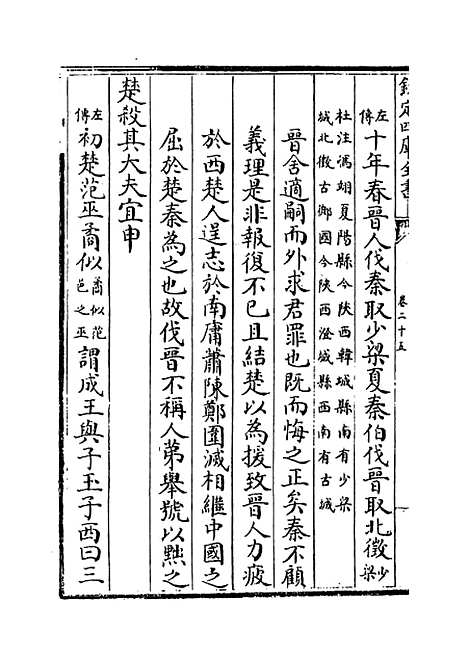 欽定四庫全書
卷二十五
左傳十年春晉人伐秦取少梁夏秦伯伐晉取北徵少梁
杜注馮翊夏陽縣今陜西韓城縣南有少梁
城北徵古鄉國今陜西澄城縣西南有古城
晉舍適嗣而外求君罪也既而悔之正矣秦不顧
義理是非報復不已且結楚以為援致晉人力疲
於西楚人逞志於南庸蕭陳鄭圍滅相繼中國之
屈於楚秦為之也故伐晉不稱人苐舉號以黜之
楚殺其大夫宜申
左傳初楚范巫矞似矞似范邑之巫謂成王與子玉子西曰三